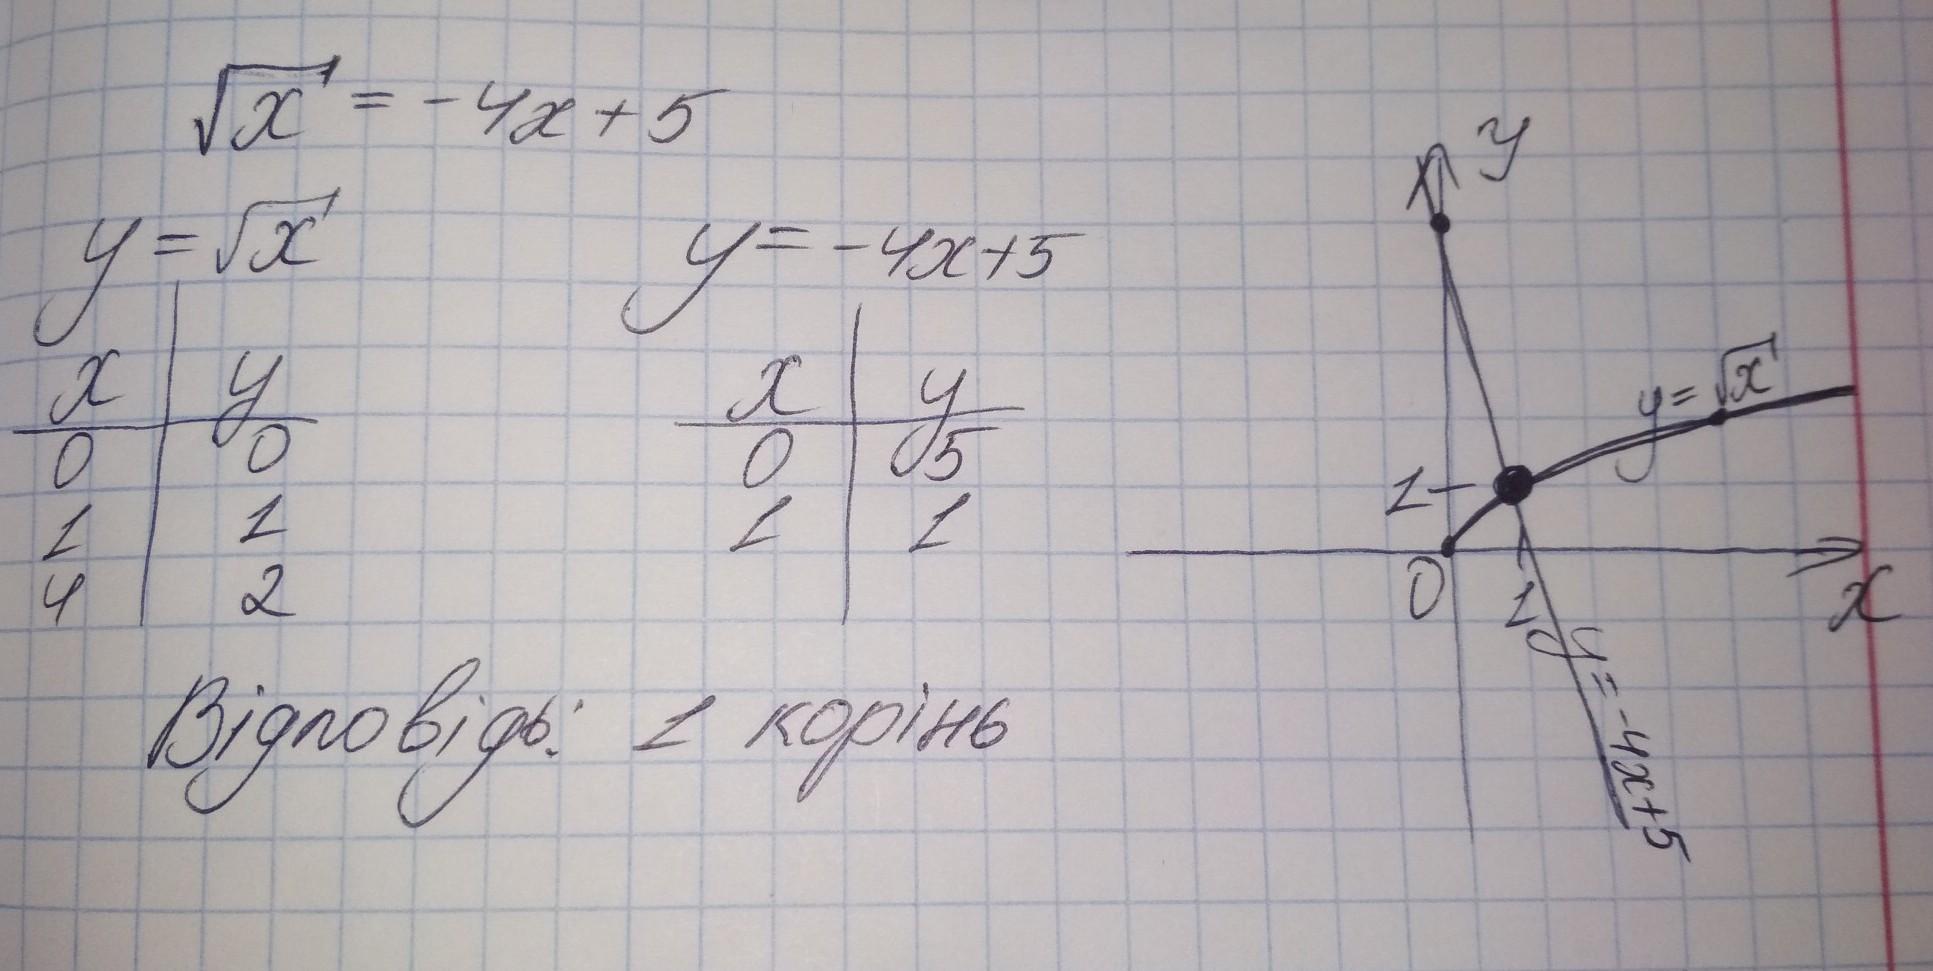 √x = -4x + 5
y = √x
x y
0 0
1 1
4 2
y = -4x+5
x y
0 5
1 1
y
y = √x
1
0
1
x
y = -4x+5
Відповідь: 1 корінь